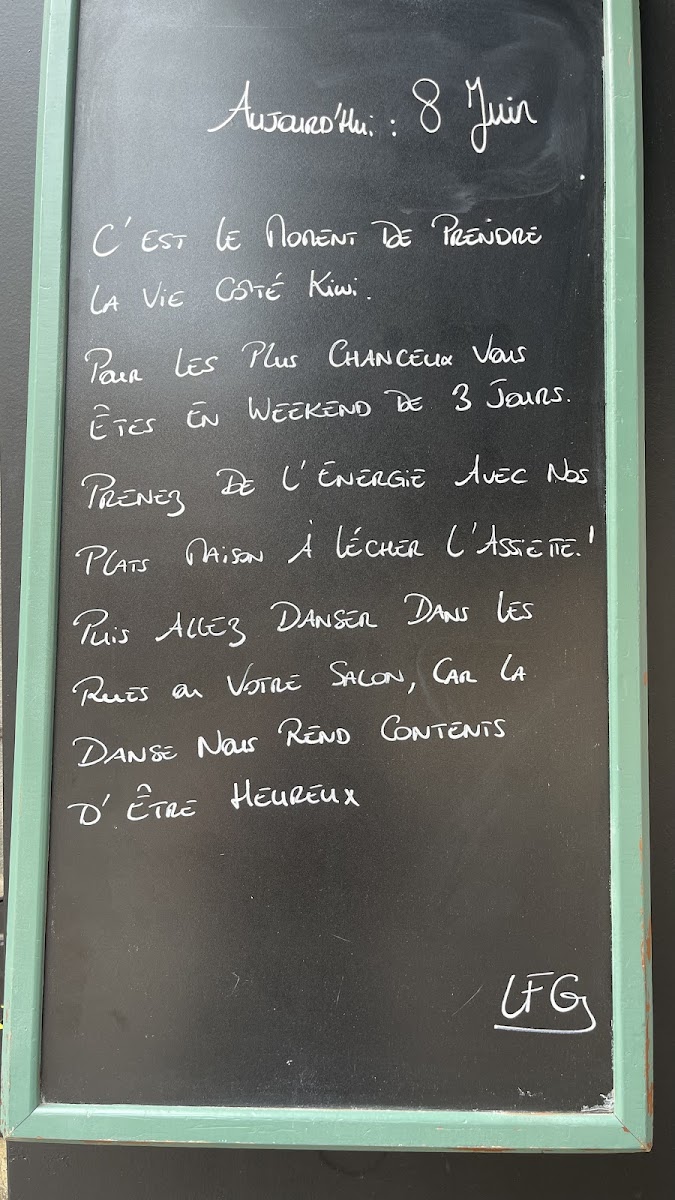 Aujourd'hui : 8 Juin
C'est le moment de prendre
la vie côté Kiwi.
Pour les plus chanceux vous
êtes en weekend de 3 jours.
Prenez de l'énergie avec nos
plats maison à lécher l'assiette !
Puis allez danser dans les
rues ou votre salon, car la
danse nous rend contents
d'être heureux
LFG